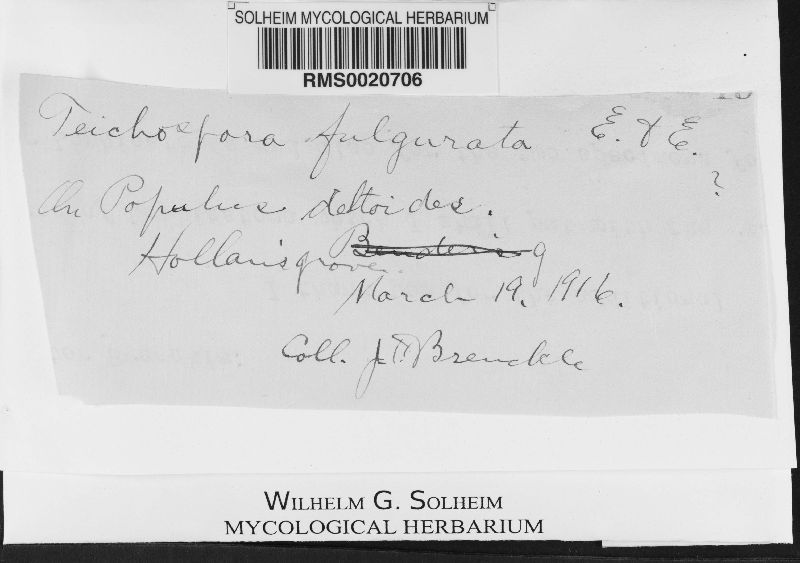 SOLHEIM MYCOLOGICAL HERBARIUM
RMS0020706
Teichospora fulgurata E. & E.
?
On Populus deltoides.
Hollansgrove.
March 19, 1916.
Coll. J.F. Brenckle
WILHELM G. SOLHEIM
MYCOLOGICAL HERBARIUM